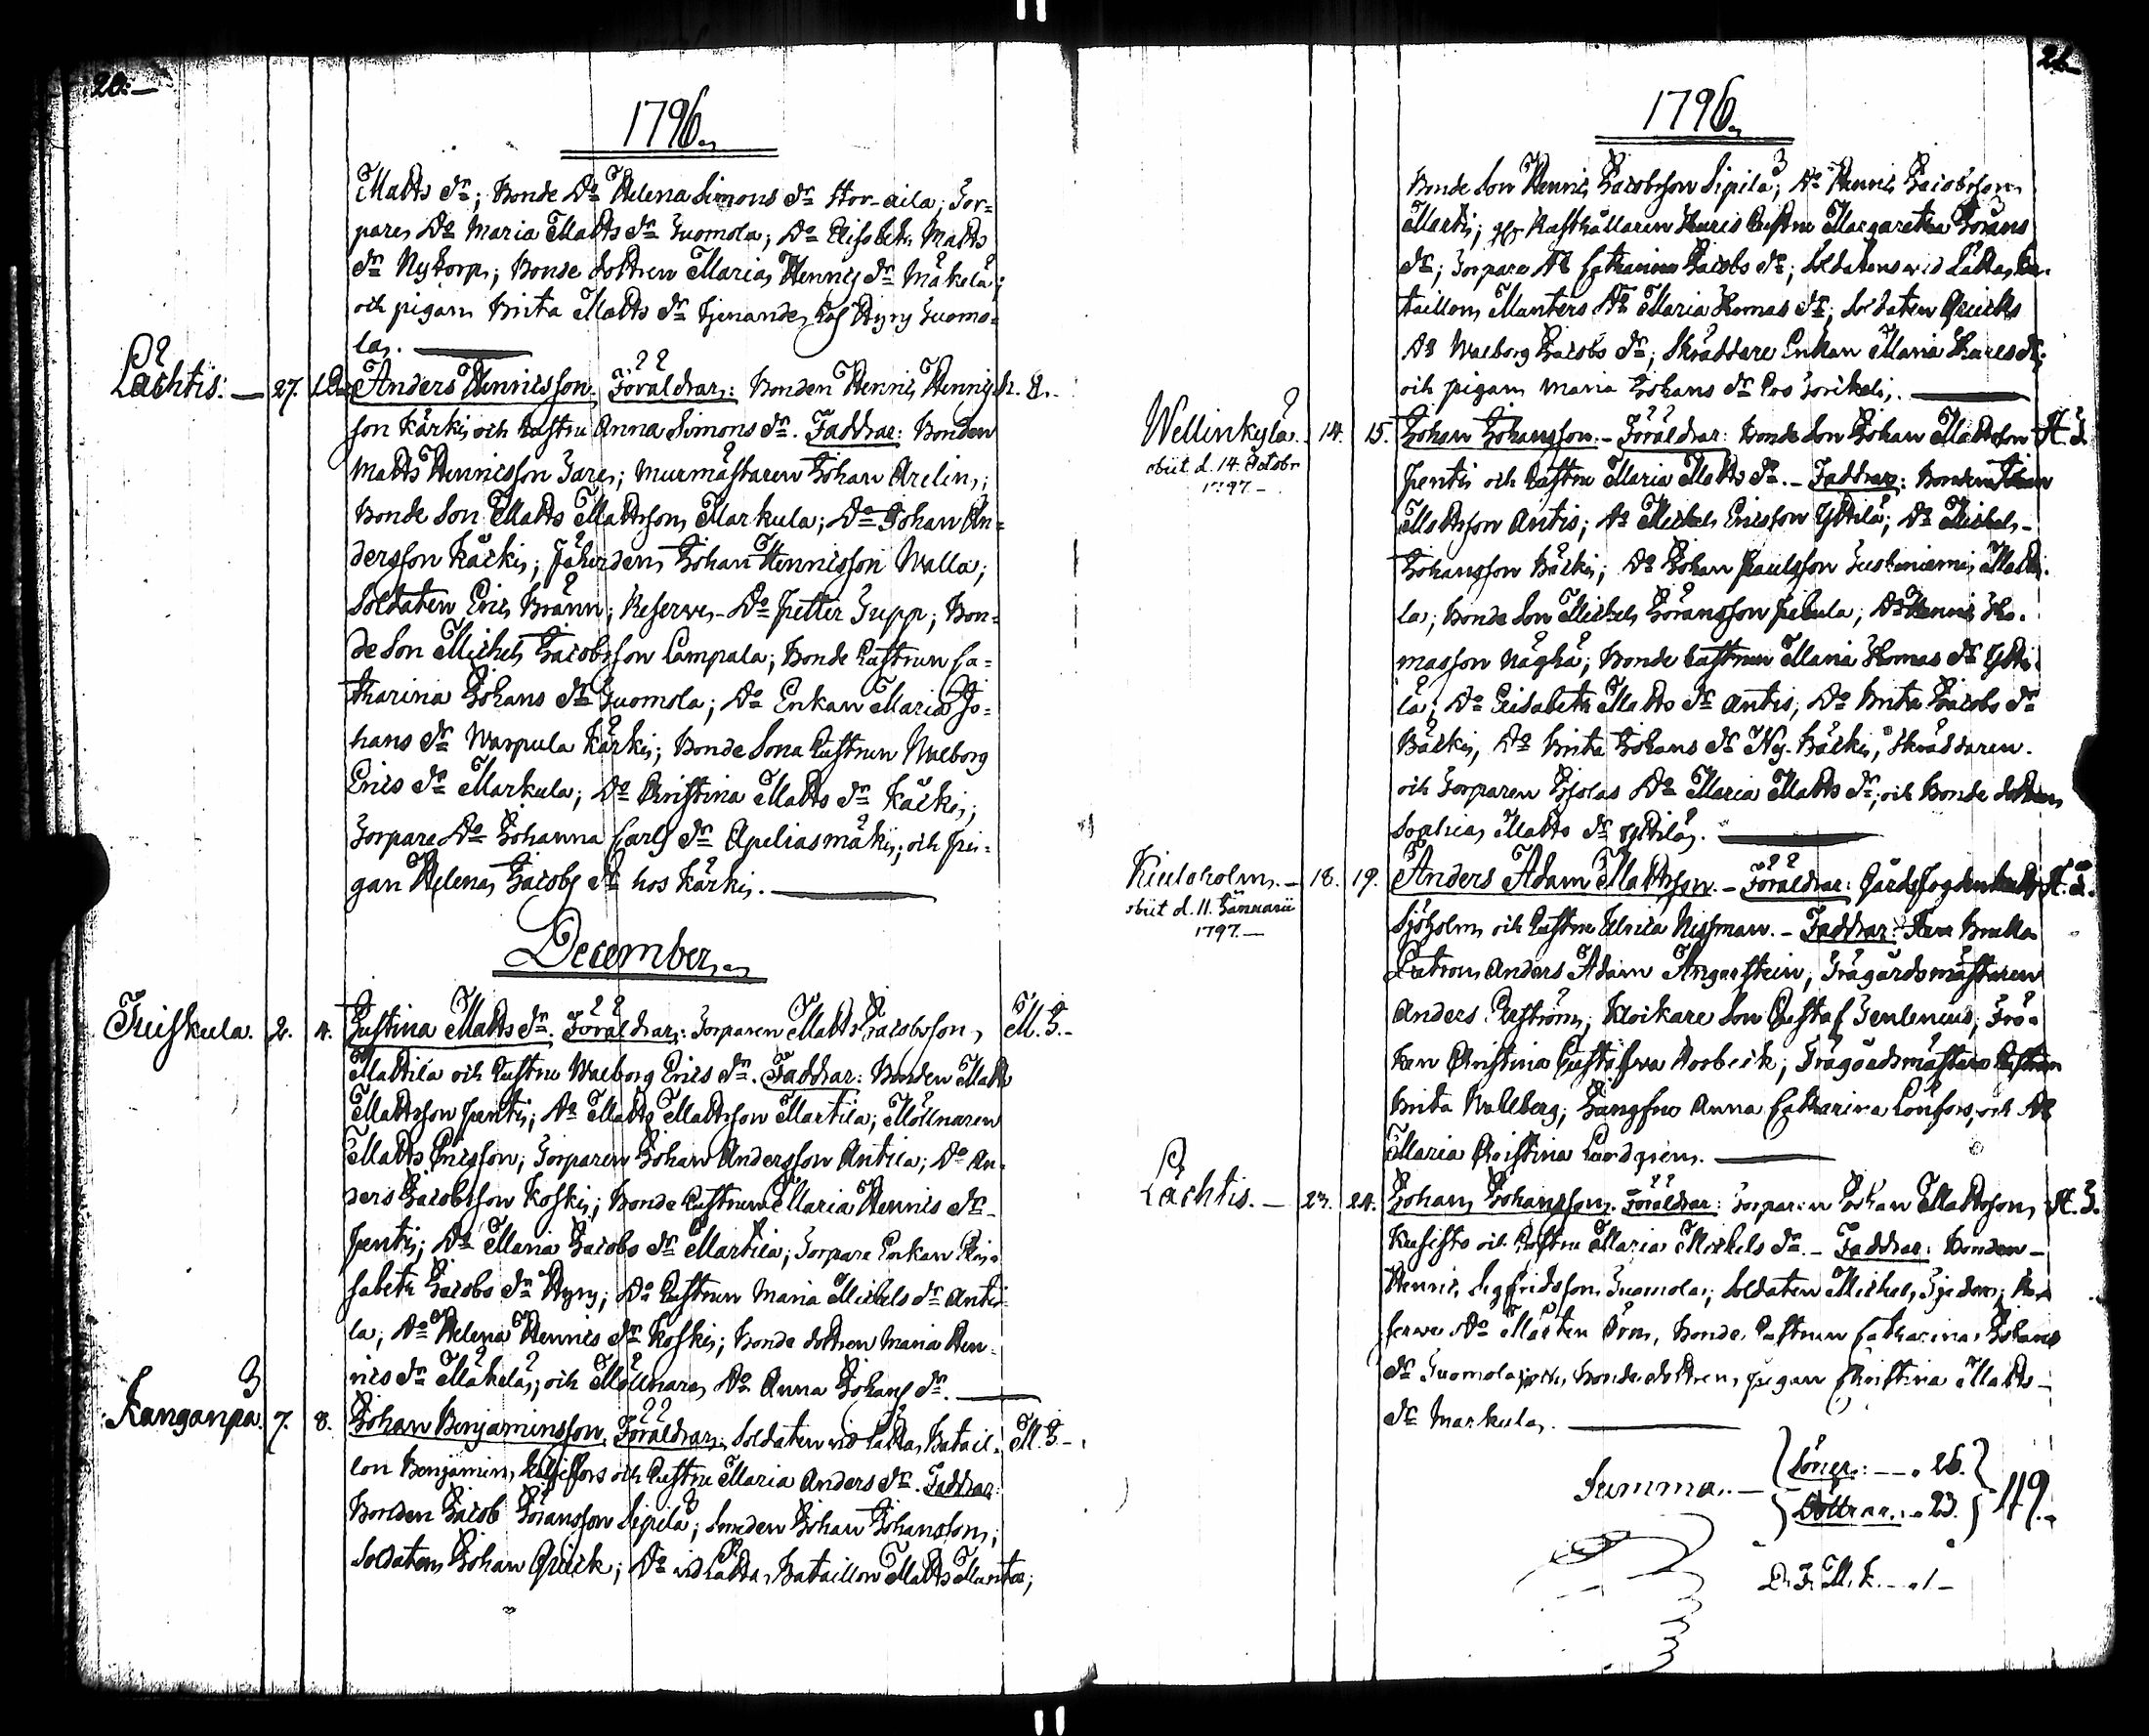 20.
1796.
Matts dr; Bonde Do Helena Simons dr Stor-aila; Tor=
pare Do Maria Matts dr Tuomola; Do Elisabeth Matts
dr Nytorp; Bonde dottren Maria Henrics dr Mäkelä;
och pigan Brita Matts dr tjenande hos Hyry Tuomo=
la.
Lächtis. 27. Anders Henricsson. Föräldrar: Bonden Henric Henrics
son Kärki och hustru Anna Simons dr. Faddrar: Bonden
Matts Henricsson Jares; Murmästaren Johan Arelin;
Bonde Son Matts Mattsson Markula; Do Johan An=
dersson Kärki; Johan Henricsson Walla;
Soldaten Eric Bränn; Reserve Do Petter Jupp; Bon=
de Son Michel Jacobsson Lampala; Bonde hustrun Ca=
tharina Johans dr Tuomola; Do Enkan Maria Jo=
hans dr Warpula Kärki; Bonde Sona hustrun Walborg
Erics dr Markula; Do Christina Matts dr Kärki;
Torpare Do Johanna Carls dr Apeliasmäki; och pi=
gan Helena Jacobs dr hos Kärki.
December.
Tuiskula. 2. 4. Justina Matts dr. Föräldrar: Torparen Matts Jacobsson M. T.
Mattila och hustru Walborg Erics dr. Faddrar: Bonden Matts
Mattsson Pentti; Do Matts Mattsson Marttila; Möllnaren
Matts Ericsson; Torparen Johan Andersson Antila; Do An=
ders Jacobsson Koski; Bonde hustrun Maria Henrics dr
Pentti; Do Maria Jacobs dr Marttila; Torpare Enkan Eli=
sabeth Jacobs dr Hyry; Do hustrun Maria Michels dr Anti=
la; Do Helena Henrics dr Koski; Bonde dottren Maria Hen=
rics dr Mäkelä; och Möllnare Do Anna Johans dr.
Kanganpä. 7. 8. Johan Benjaminsson. Föräldrar: Soldaten vid Lätta Batail= M. T.
lon Benjamin och hustru Maria Anders dr. Faddrar:
Bonden Jacob Göransson Sipilä; Smeden Johan Johansson;
Soldaten Johan Quick; Do vid Lätta Bataillon Matts Munter;
21.
1796.
Bonde Son Henric Jacobsson Sipilä; Do Henric Jacobsson
Martti; Rusthållaren hustru Margaretha Görans
dr; Torpare Do Catharina Jacobs dr; Soldatens vid Lätta Ba=
taillon Munters Do Maria Thomas dr; Soldaten Quicks
Do Walborg Jacobs dr; Skräddare Enkan Maria dr;
och pigan Maria Johans dr hos.
Wellinkylä. 14. 15. Johan Johansson. Föräldrar: Bonde Son Johan Mattsson
obiit d. 14. Octobr.
1797.
Pentti och hustru Maria Matts dr. Faddrar: Bonden Johan
Mattsson Antti; Do Michel Ericsson Yttilä; Do Michel
Johansson Bäcki; Do Johan Paulsson Mattila;
Bonde Son Michel Göransson; Do Henric Tho=
masson Näghä; Bonde hustrun Maria Thomas dr Ytti=
lä; Do Elisabeth Matts dr Anttis; Do Brita Jacobs dr
Bäcki; Do Brita Johans dr Ny-Bäcki; Skräddaren
och Torparen Do Maria Matts dr; och Bonde dottren
Sophia Matts dr Yttilä.
Kiuloholm. 18. 19. Anders Adam Mattsson. Föräldrar: Gårdsfogden Matts
obiit d. 11. Januarii
1797.
Sjöholm och hustru Ulrica Nissman. Faddrar: Herr Bruks
Patron Anders Adam Angerstein; Trägårdsmästaren
Anders; Klockare Son Gustaf Tenlenius; Frö=
ken Christina Gustafva Roobeck; Trägårdsmästare hustrun
Brita Wallberg; Jungfru Anna Catharina Lönfors; och Do
Maria Christina Lundgren.
Lächtis. 23. 24. Johan Johansson. Föräldrar: Torparen Johan Mattsson
Kusisto och hustru Maria Michels dr. Faddrar: Bonden
Henric Sigfridsson Tuomola; Soldaten Michel; Re=
serve Do Mårten Örn; Bonde hustrun Catharina Johans
dr Tuomola; och Bonde dottren, pigan Christina Matts
dr Markula.
Summa. Söner: 26.
Döttrar: 23. 49.
D. F. M. K. 1